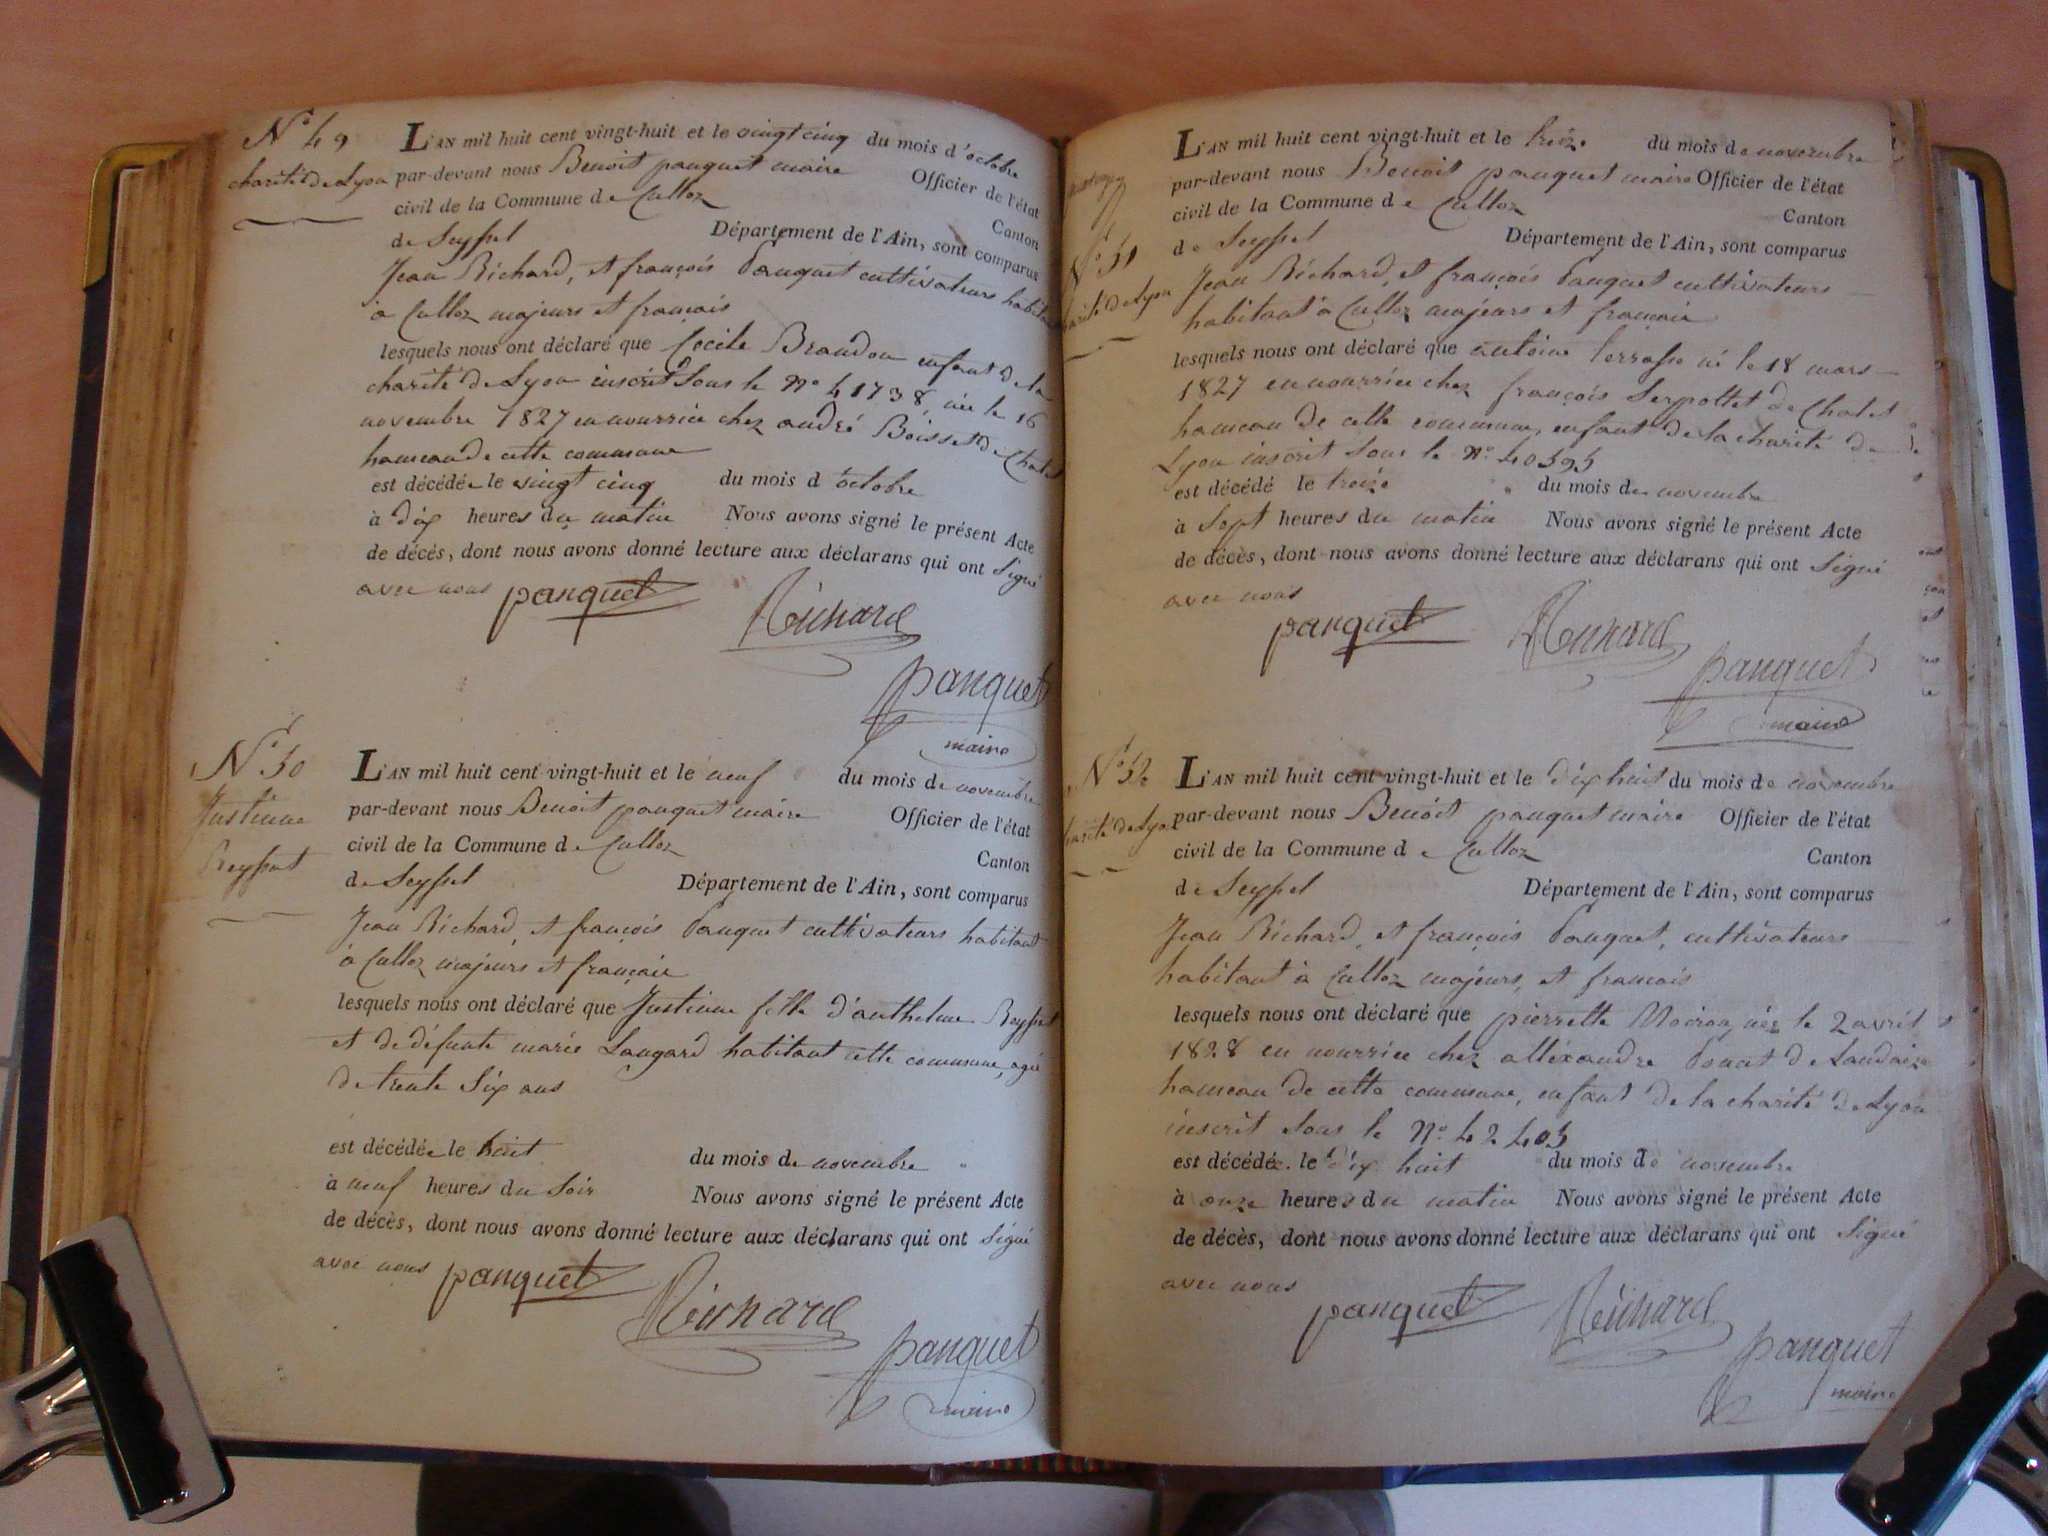 N° 49
charité de Lyon
L'AN mil huit cent vingt-huit et le vingt cinq du mois d'octobre
par-devant nous Benoit pauquet maire Officier de l'état
civil de la Commune de Culloz Canton
de Seyssel Département de l'Ain, sont comparus
Jean Richard, et françois Pauquet cultivateurs habitant
à Culloz majeurs et francais
lesquels nous ont déclaré que Cecile Brandon enfant de la
charité de Lyon inscrit sous le N° 41738, née le 16
novembre 1827 en nourrice chez andré Boisset de Chatel
hameau de cette commune
est décédée le vingt cinq du mois d'octobre
à dix heures du matin Nous avons signé le présent Acte
de décès, dont nous avons donné lecture aux déclarans qui ont signé
avec nous pauquet Richard
pauquet
maire
N° 50
Justinne
Reyssat
L'AN mil huit cent vingt-huit et le neuf du mois de novembre
par-devant nous Benoit pauquet maire Officier de l'état
civil de la Commune de Culloz Canton
de Seyssel Département de l'Ain, sont comparus
Jean Richard, et françois Pauquet cultivateurs habitant
à Culloz majeurs et francais
lesquels nous ont déclaré que Justinne fille d'anthelme
et de défunte marie Laugard habitant cette commune, agée
de trente six ans
est décédée le huit du mois de novembre
à neuf heures du soir Nous avons signé le présent Acte
de décès, dont nous avons donné lecture aux déclarans qui ont signé
avec nous pauquet Richard
pauquet
maire
N° 51
charité de Lyon
L'AN mil huit cent vingt-huit et le treize du mois de novembre
par-devant nous Benoit pauquet maire Officier de l'état
civil de la Commune de Culloz Canton
de Seyssel Département de l'Ain, sont comparus
Jean Richard, et françois Pauquet cultivateurs
habitant à Culloz majeurs et francais
lesquels nous ont déclaré que antoine terrasse né le 18 mars
1827 en nourrice chez françois Serpollet de Chatel
hameau de cette commune, enfant de la charité de
Lyon inscrit sous le N° 40595
est décédé le treize du mois de novembre
à sept heures du matin Nous avons signé le présent Acte
de décès, dont nous avons donné lecture aux déclarans qui ont signé
avec nous
pauquet Richard
pauquet
maire
N° 52
charité de Lyon
L'AN mil huit cent vingt-huit et le dix huit du mois de novembre
par-devant nous Benoit pauquet maire Officier de l'état
civil de la Commune de Culloz Canton
de Seyssel Département de l'Ain, sont comparus
Jean Richard, et françois Pauquet, cultivateurs
habitant à Culloz majeurs, et francais
lesquels nous ont déclaré que pierrette née le 2 avril
1828 en nourrice chez alléxandre de Landaize
hameau de cette commune, enfant de la charité de Lyon
inscrit sous le N° 42405
est décédée le dix huit du mois de novembre
à onze heures du matin Nous avons signé le présent Acte
de décès, dont nous avons donné lecture aux déclarans qui ont signé
avec nous
pauquet Richard
pauquet
maire